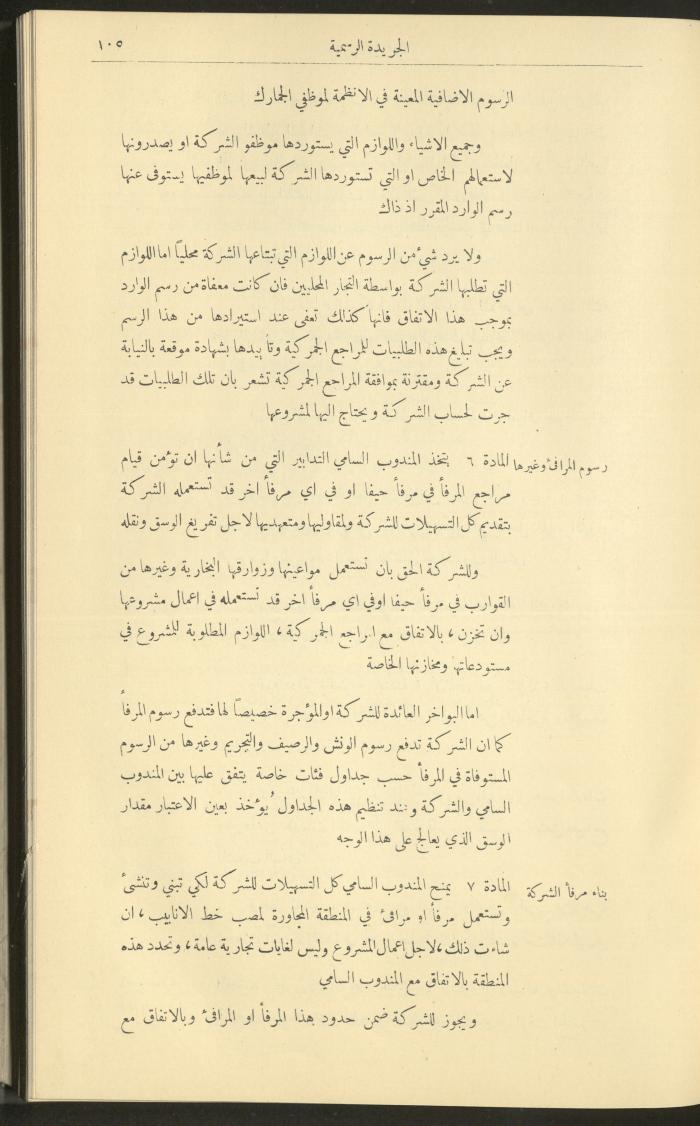 الجريدة الرسمية
١٠٥
الرسوم الاضافية المعينة في الانظمة لموظفي الجمارك
وجميع الاشياء واللوازم التي يستوردها موظفو الشركة او يصدرونها
لاستعمالهم الخاص او التي تستوردها الشركة لبيعها لموظفيها يستوفى عنها
رسم الوارد المقرر اذ ذاك
ولا يرد شيء من الرسوم عن اللوازم التي تبتاعها الشركة محلياً اما اللوازم
التي تطلبها الشركة بواسطة التجار المحليين فان كانت معفاة من رسم الوارد
بموجب هذا الاتفاق فانها كذلك تعفى عند استيرادها من هذا الرسم
ويجب تبليغ هذه الطلبيات للمراجع الجمركية وتأييدها بشهادة موقعة بالنيابة
عن الشركة ومقترنة بموافقة المراجع الجمركية تشعر بان تلك الطلبيات قد
جرت لحساب الشركة ويحتاج اليها لمشروعها
رسوم المرافئ وغيرها
المادة ٦ يتخذ المندوب السامي التدابير التي من شأنها ان تؤمن قيام
مراجع المرفأ في مرفأ حيفا او في اي مرفأ اخر قد تستعمله الشركة
بتقديم كل التسهيلات للشركة ولمقاوليها ومتعهديها لاجل تفريغ الوسق ونقله
وللشركة الحق بان تستعمل مواعينها وزوارقها البخارية وغيرها من
القوارب في مرفأ حيفا او في اي مرفأ اخر قد تستعمله في اعمال مشروعها
وان تخزن ، بالاتفاق مع المراجع الجمركية ، اللوازم المطلوبة للمشروع في
مستودعاتها ومخازنها الخاصة
اما البواخر العائدة للشركة او المؤجرة خصيصاً لها فتدفع رسوم المرفأ
كما ان الشركة تدفع رسوم الونش والرصيف والتجريم وغيرها من الرسوم
المستوفاة في المرفأ حسب جداول فئات خاصة يتفق عليها بين المندوب
السامي والشركة وعند تنظيم هذه الجداول يُؤخذ بعين الاعتبار مقدار
الوسق الذي يعالج على هذا الوجه
بناء مرفأ الشركة
المادة ٧ يمنح المندوب السامي كل التسهيلات للشركة لكي تبني وتنشئ
وتستعمل مرفأ او مرافئ في المنطقة المجاورة لمصب خط الانابيب ، ان
شاءت ذلك ، لاجل اعمال المشروع وليس لغايات تجارية عامة ، وتحدد هذه
المنطقة بالاتفاق مع المندوب السامي
ويجوز للشركة ضمن حدود هذا المرفأ او المرافئ وبالاتفاق مع